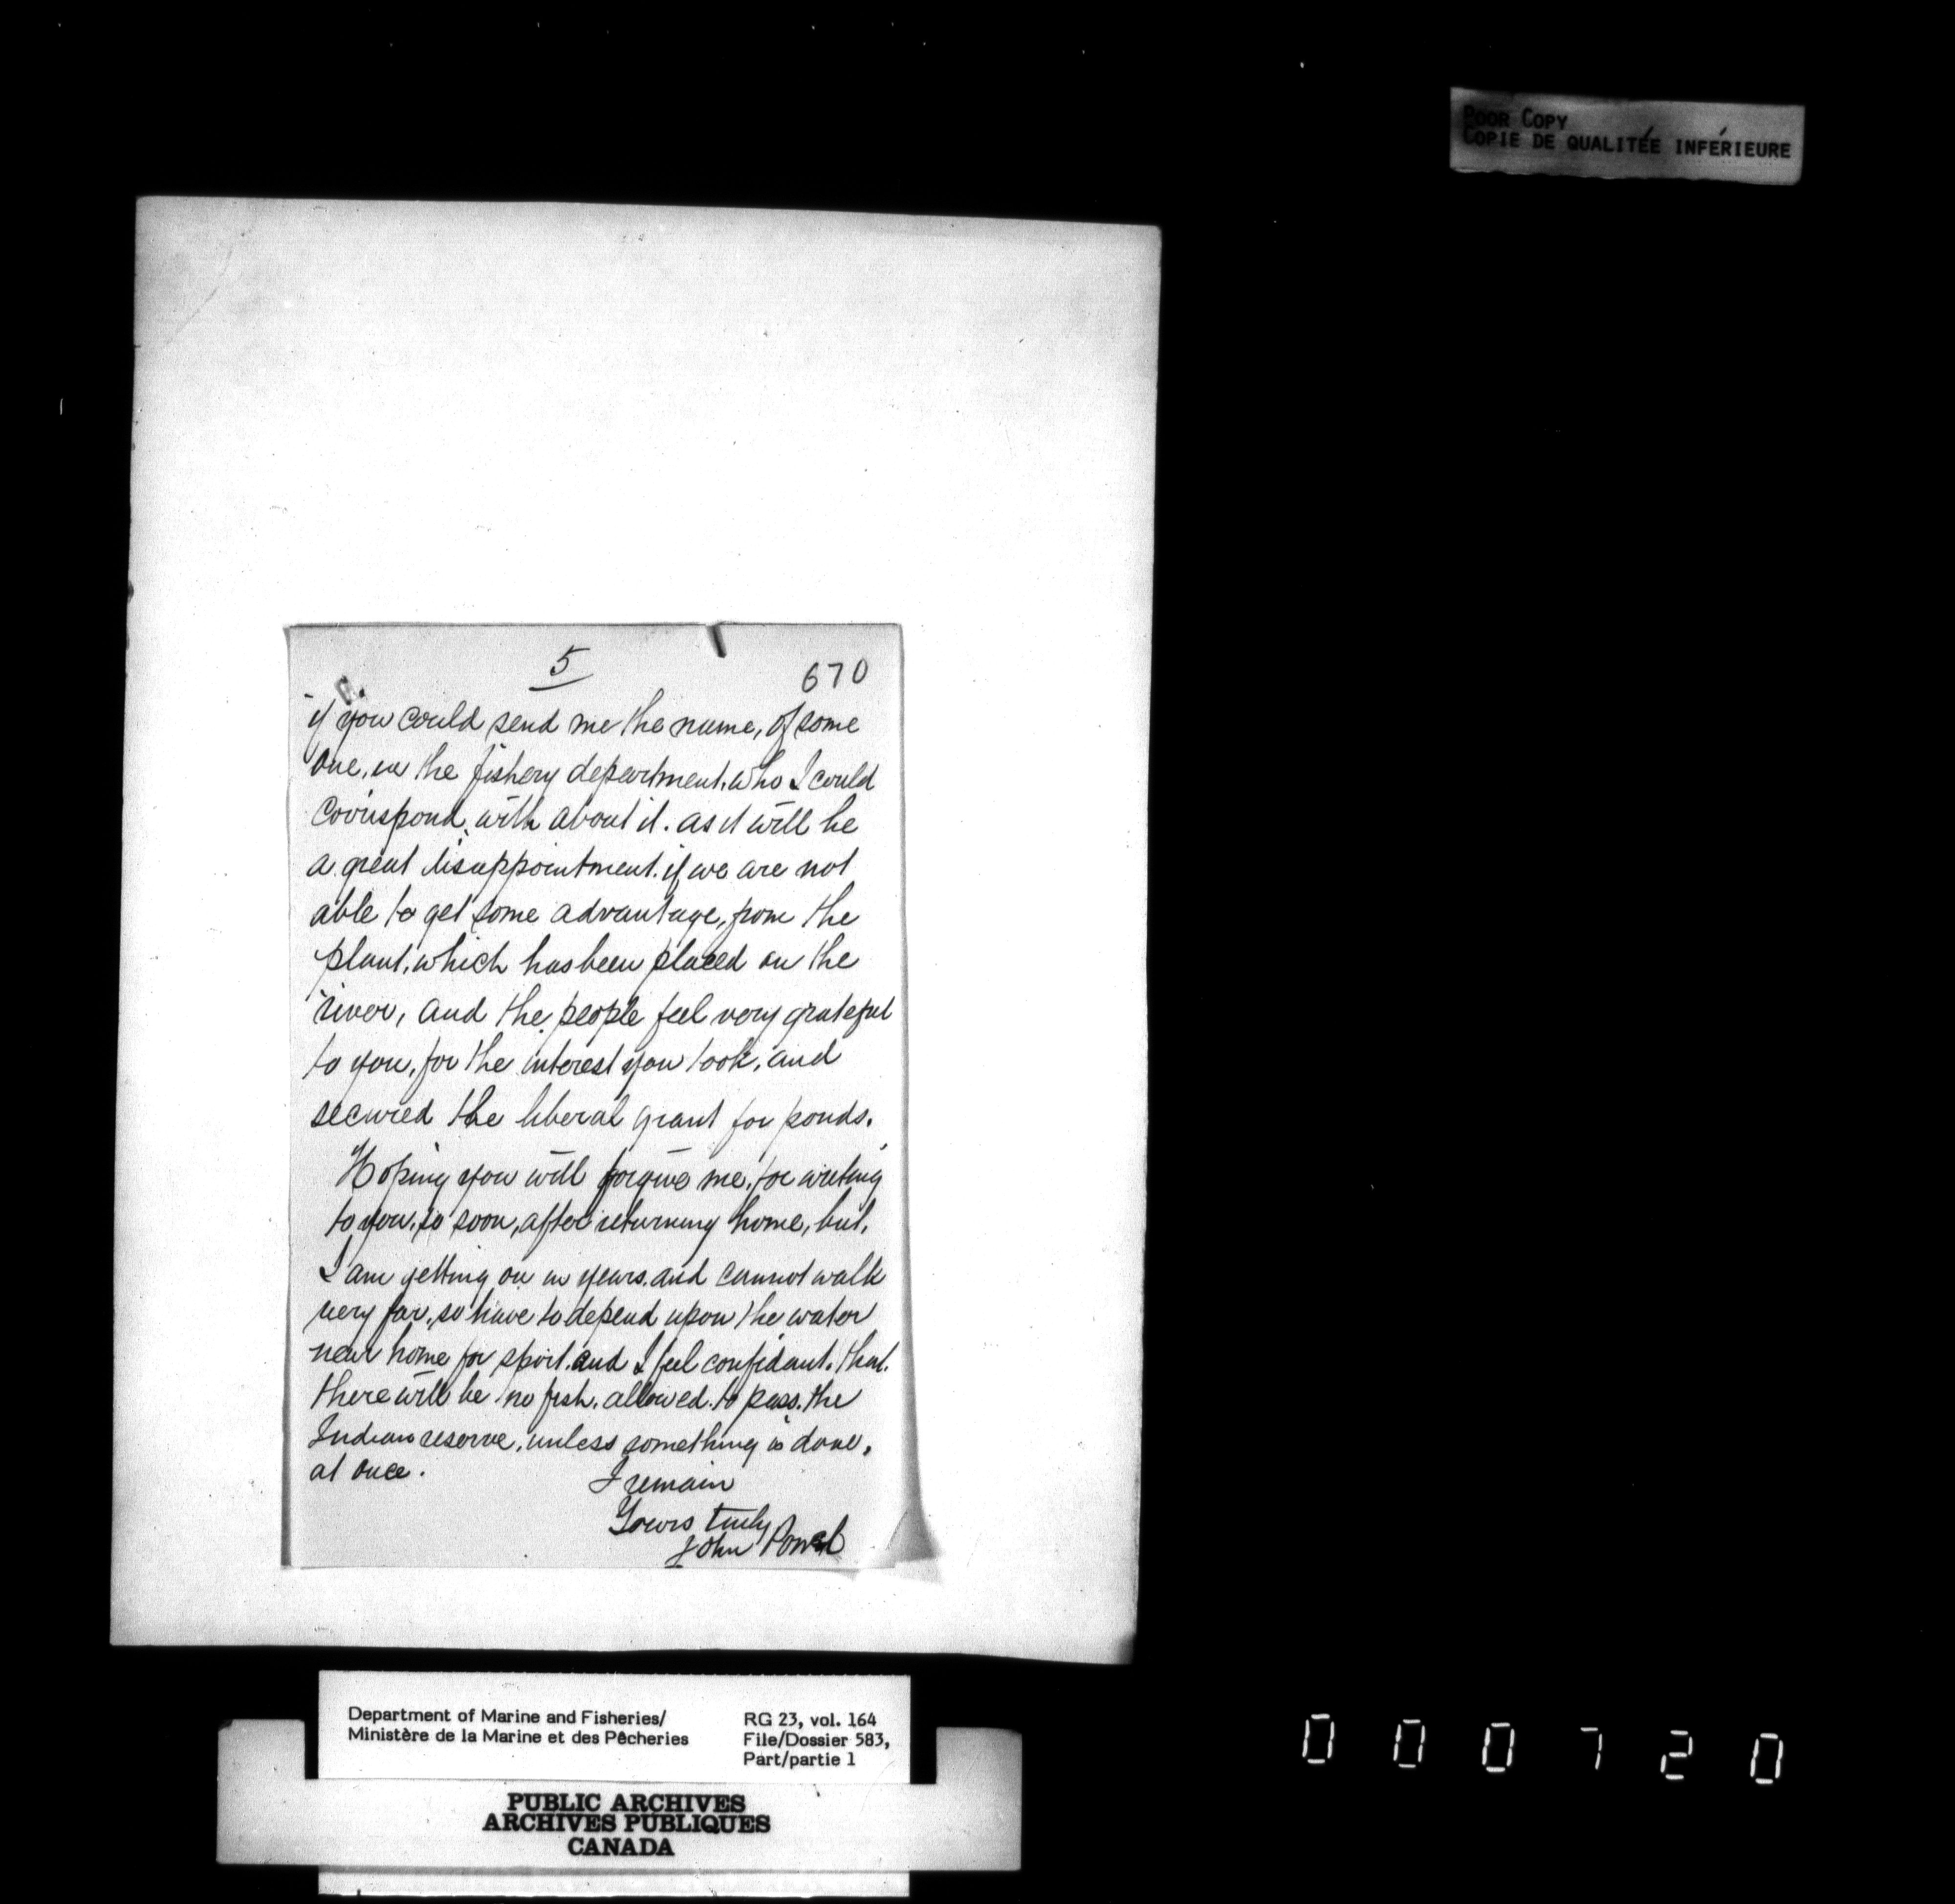 POOR COPY
COPIE DE QUALITÉE INFÉRIEURE
5
670
if you could send me the name, of some
one, in the fishery department, who I could
corrispond, with about it. as it will be
a great disappointment. if we are not
able to get some advantage, from the
plant, which has been placed on the
river, and the people feel very grateful
to you, for the interest you took, and
secured the liberal grant for ponds.
Hoping you will forgive me, for writing
to you, so soon, after returning home, but,
I am getting on in years. and cannot walk
very far, so have to depend upon the water
near home for sport. and I feel confidant. that.
there will be no fish. allowed. to pass. the
Indian reserve, unless something is done,
at once.
I remain
Yours truly
John Powel
Department of Marine and Fisheries/
Ministère de la Marine et des Pêcheries
RG 23, vol. 164
File/Dossier 583,
Part/partie 1
PUBLIC ARCHIVES
ARCHIVES PUBLIQUES
CANADA
000720